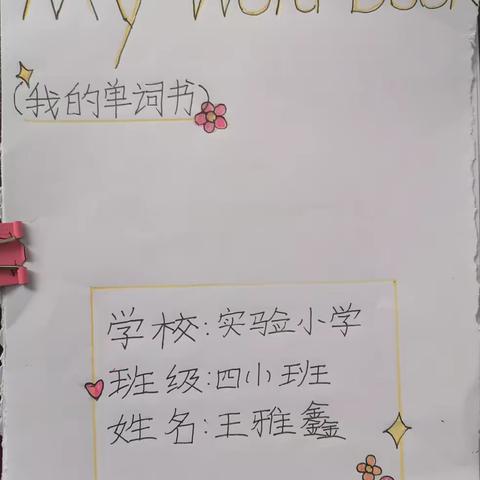 My Word Book
(我的单词书)
学校:实验小学
班级:四小班
姓名:王雅鑫